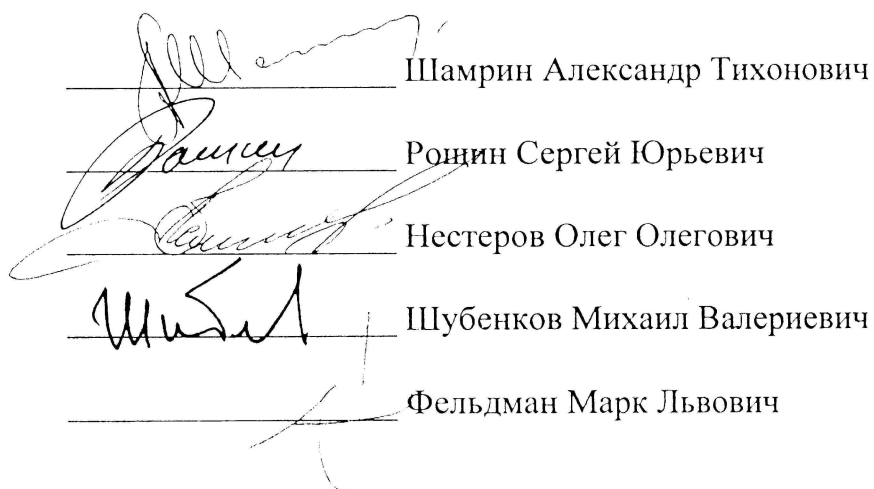 Шамрин Александр Тихонович
Рощин Сергей Юрьевич
Нестеров Олег Олегович
Шубенков Михаил Валериевич
Фельдман Марк Львович